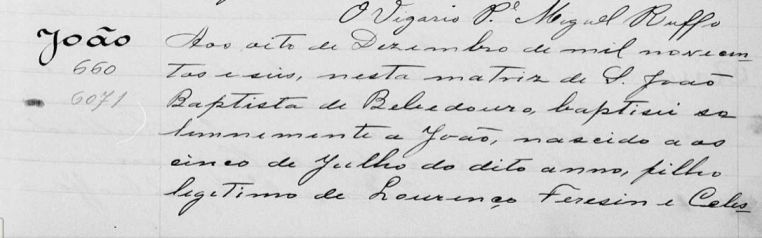 O Vigario P.e Miguel Ruffo
João
660
6071
Aos oito de Dezembro de mil novecen
tos e seis, nesta matriz de S. João
Baptista de Bebedouro, baptisei so
lemnemente a João, nascido aos
cinco de Julho do dito anno, filho
legitimo de Lourenço Feresin e Celes